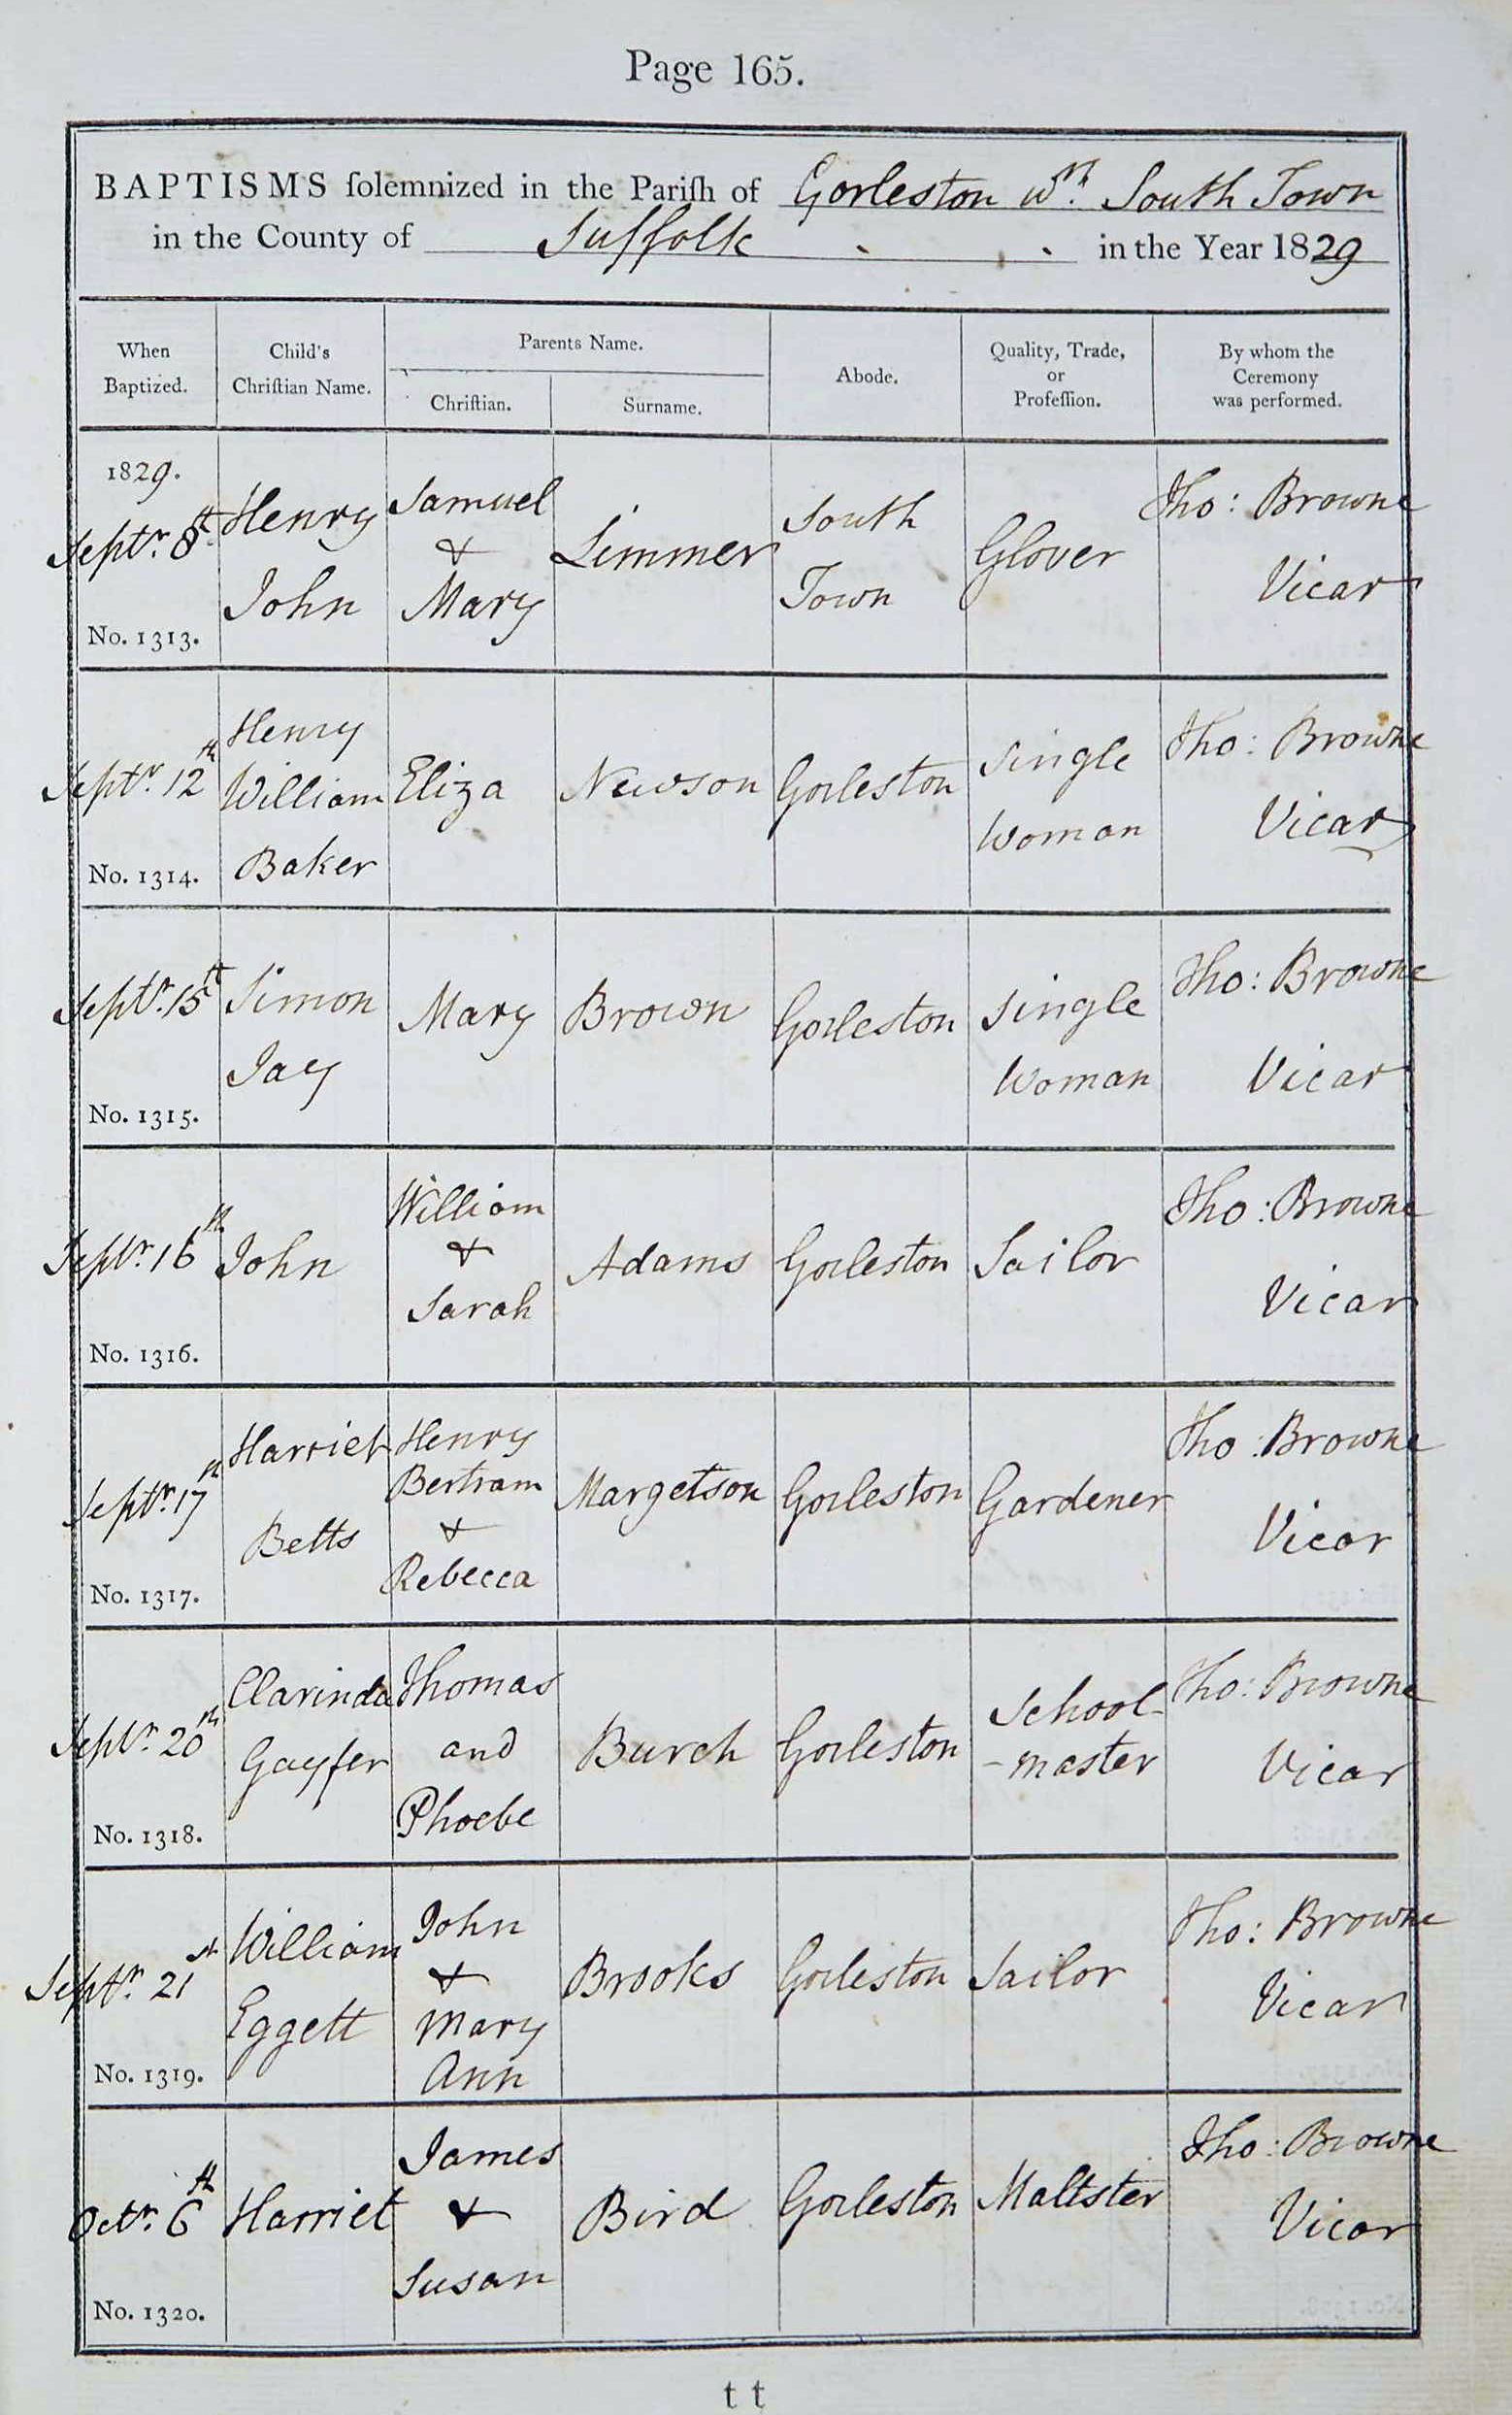 Page 165.
BAPTISMS ſolemnized in the Pariſh of Gorleston wth. South Town
in the County of Suffolk in the Year 1829
When
Baptized.
Child's
Chriſtian Name.
Parents Name.
Chriſtian.
Surname.
Abode.
Quality, Trade,
or
Profeſſion.
By whom the
Ceremony
was performed.
1829.
Septr. 8th
No. 1313.
Henry
John
Samuel
&
Mary
Limmer
South
Town
Glover
Tho: Browne
Vicar
Septr. 12th
No. 1314.
Henry
William
Baker
Eliza
Newson
Gorleston
Single
Woman
Tho: Browne
Vicar
Septr. 15th
No. 1315.
Simon
Jay
Mary
Brown
Gorleston
Single
Woman
Tho: Browne
Vicar
Septr. 16th
No. 1316.
John
William
&
Sarah
Adams
Gorleston
Sailor
Tho: Browne
Vicar
Septr. 17th
No. 1317.
Harriet
Betts
Henry
Bertram
&
Rebecca
Margetson
Gorleston
Gardener
Tho: Browne
Vicar
Septr. 20th
No. 1318.
Clarinda
Gayfer
Thomas
and
Phoebe
Burch
Gorleston
School-
-master
Tho: Browne
Vicar
Septr. 21st
No. 1319.
William
Eggett
John
&
Mary
Ann
Brooks
Gorleston
Sailor
Tho: Browne
Vicar
Octr. 6th
No. 1320.
Harriet
James
&
Susan
Bird
Gorleston
Maltster
Tho: Browne
Vicar
t t